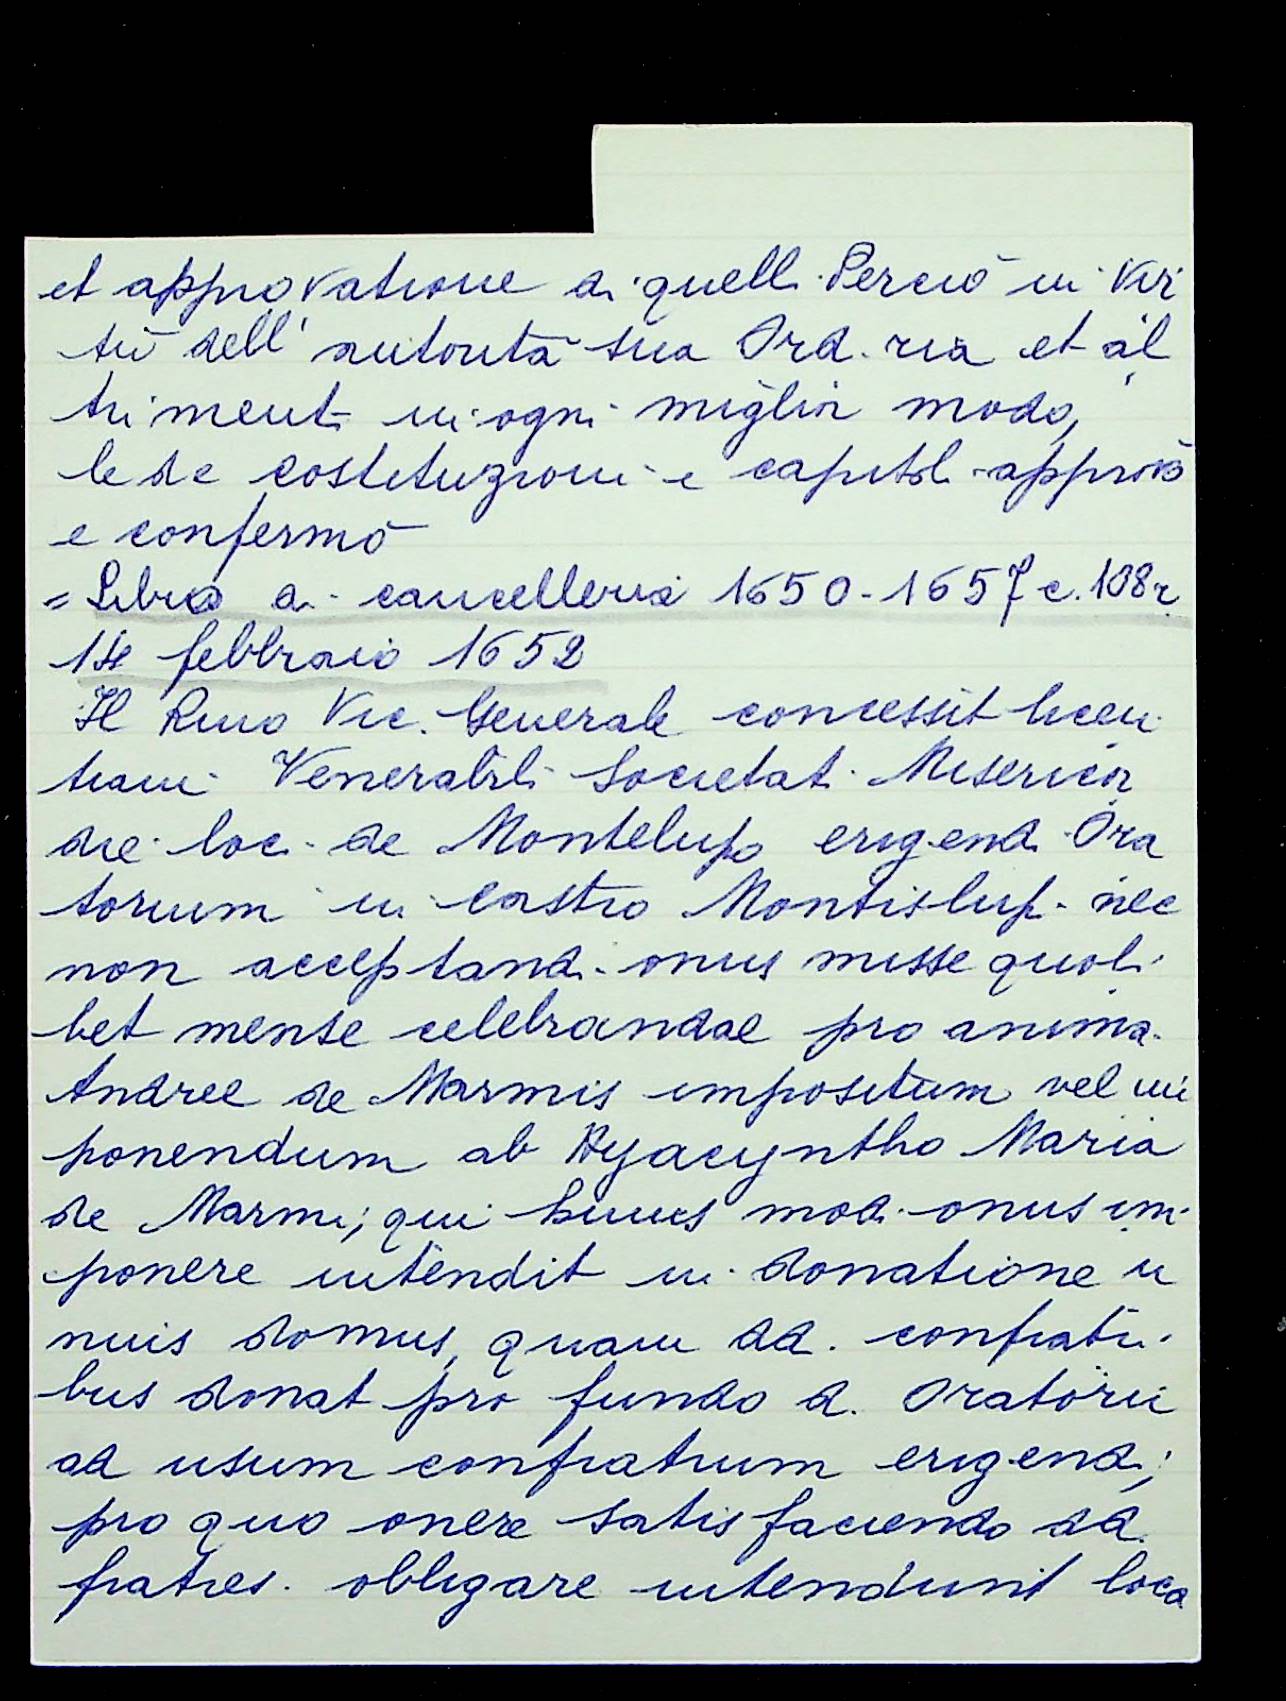 et approvatione di quelli. Perciò in vir
tù dell' autorità sua Ord.ria et al
trimenti in ogni miglior modo,
le de costituzioni e capitoli approvò
e confermò
= Libro di cancelleria 1650-1657 c. 108r
14 febbraio 1652
Il Rmo Vic. Generale concessit licen
tiam Venerabili Societati Misericor
die loci de Montelupo erigendi Ora
torium in Castro Montislupi nec
non acceptandi onus misse quoli
bet mense celebrandae pro anima
Andree de Marmis impositum vel im
ponendum ab Hyacyntho Maria
de Marmi; qui huius modi onus im
ponere intendit in donatione u
nuis domus, quam dd. confratri
bus donat pro fundo d. Oratorii
ad usum confratrum erigendi;
pro quo onere satisfaciendo dd.
fratres obligare intendunt loca